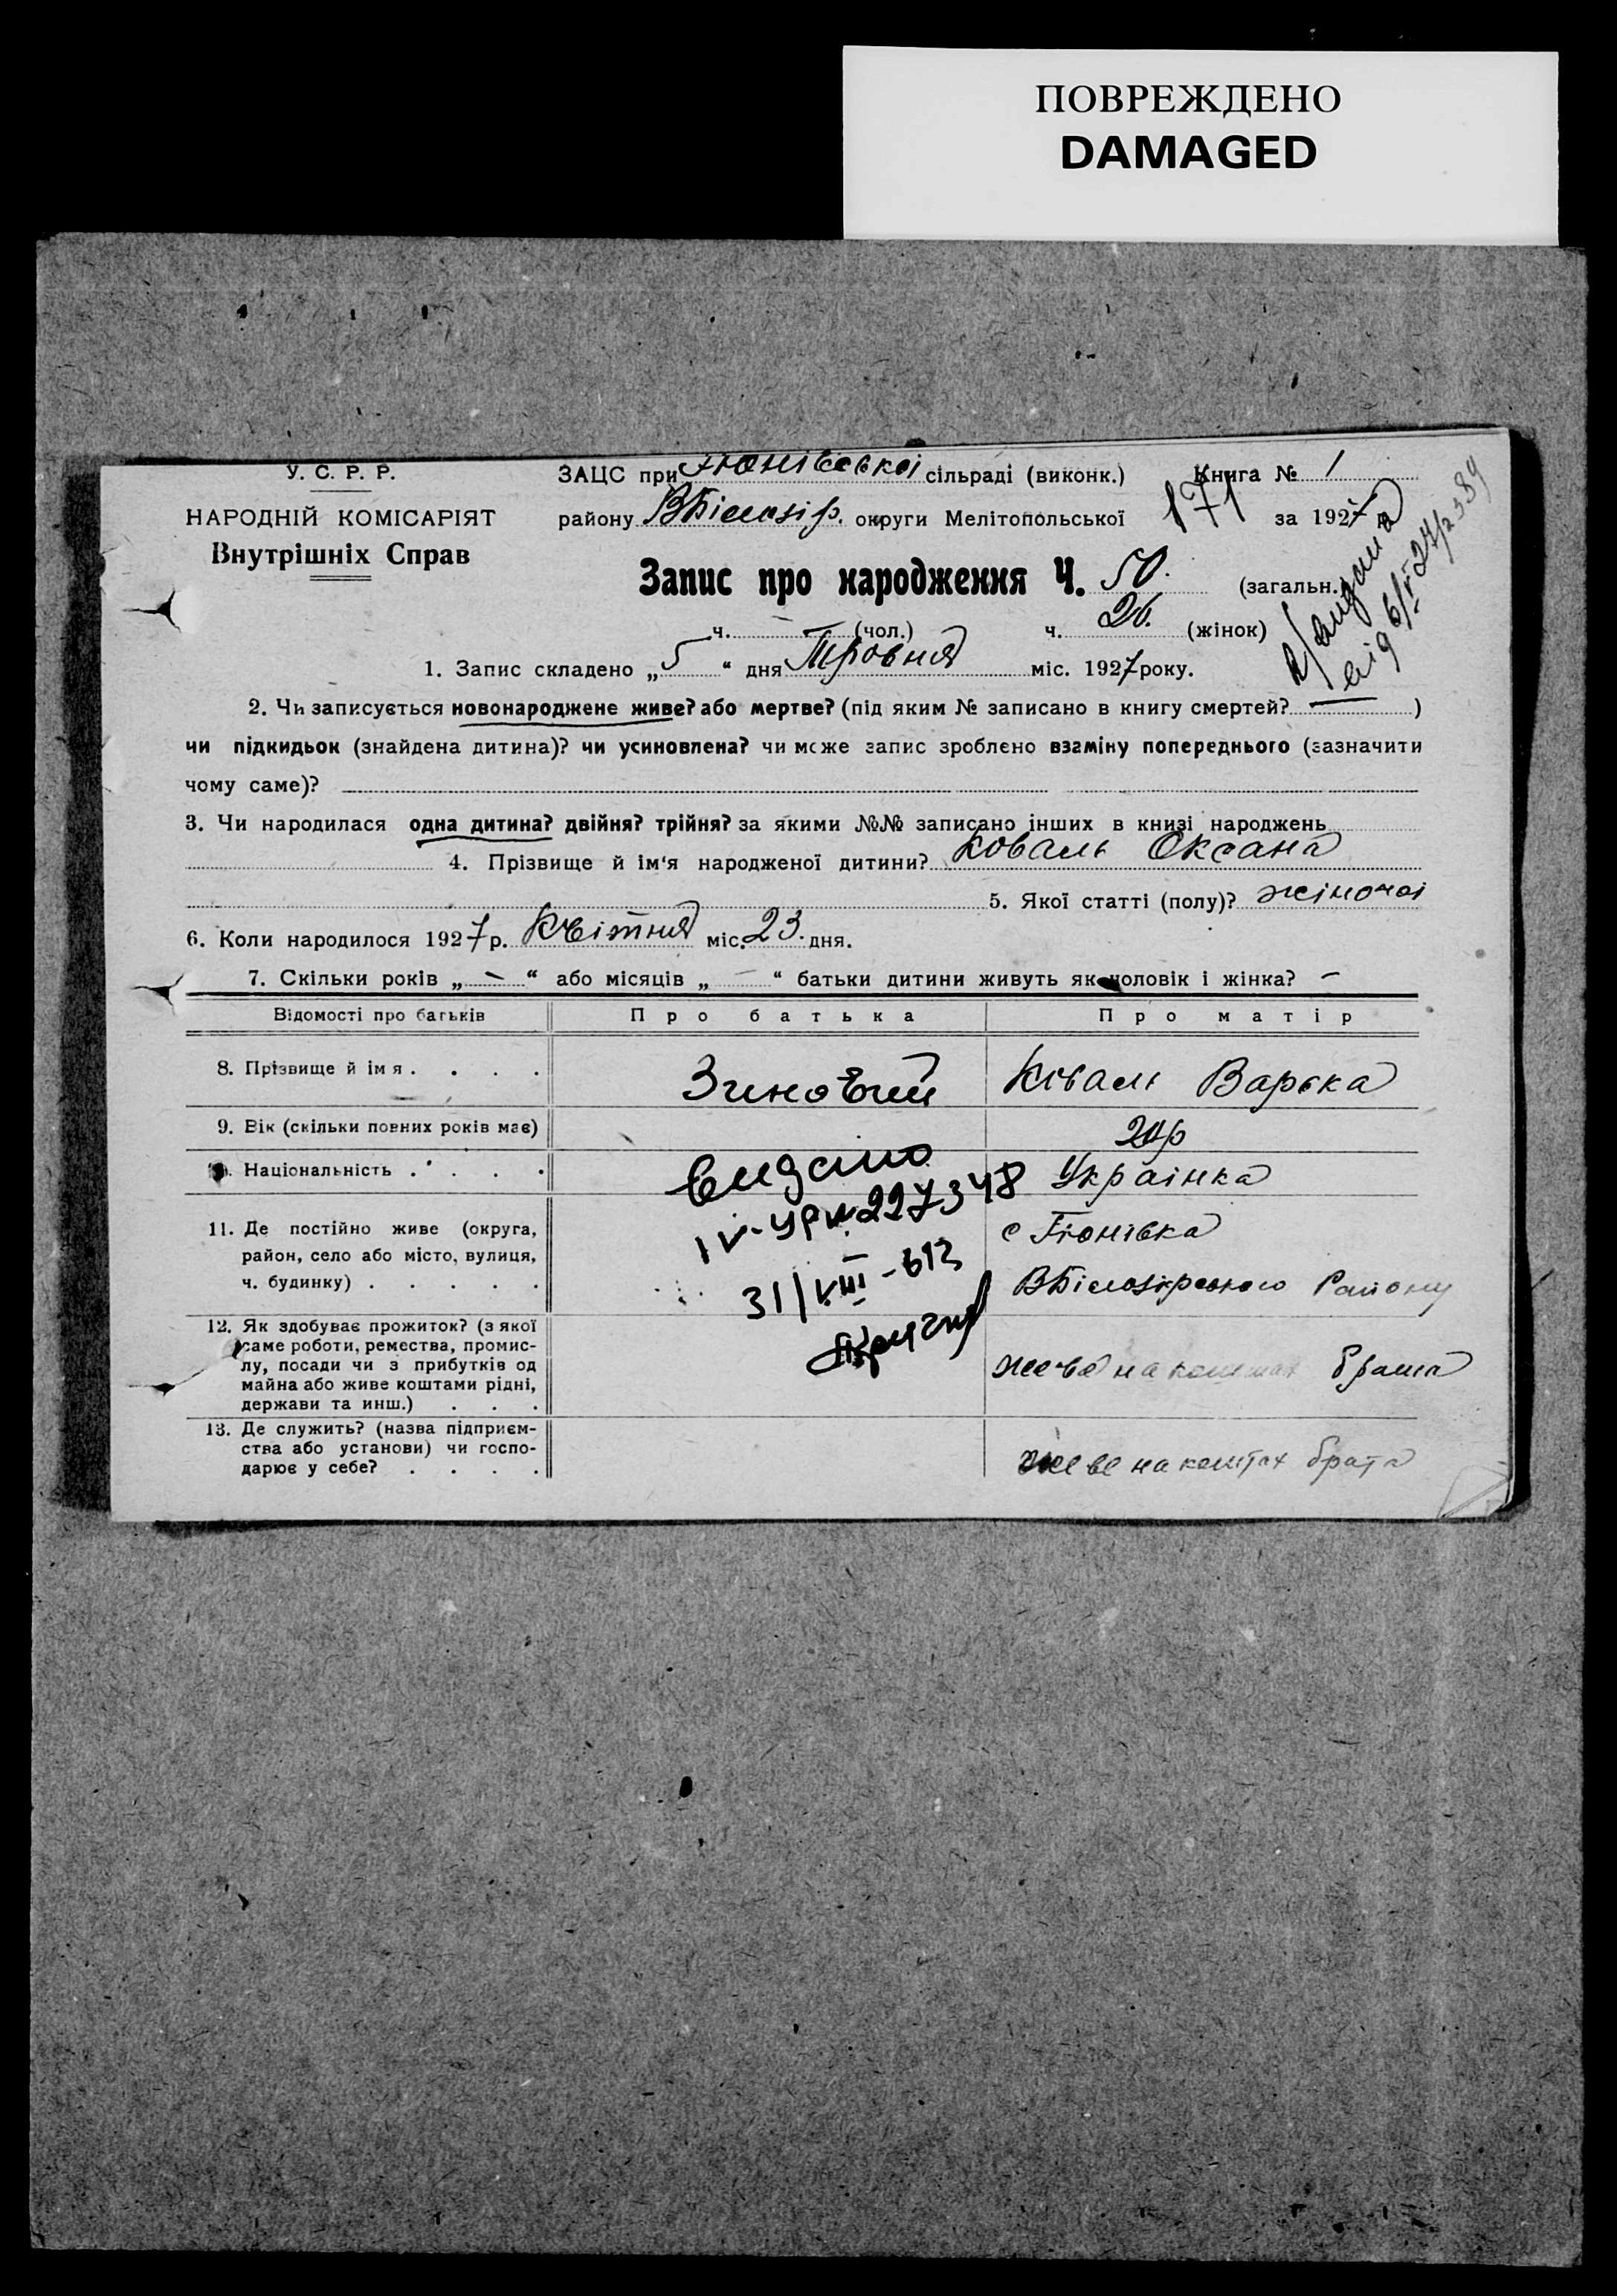 ПОВРЕЖДЕНО
DAMAGED
У. С. Р. Р.
НАРОДНІЙ КОМІСАРІЯТ
Внутрішніх Справ
ЗАЦС при Гюнівської сільраді (виконк.) Книга № 1
району ВБілозір. округи Мелітопольської 171 за 1927 р.
Запис про народження Ч. 50. (загальн.)
ч. — (чол.) ч. 26. (жінок)
від 6/V-27
1. Запис складено „5“ дня Травня міс. 1927 року.
2. Чи записується новонароджене живе? або мертве? (під яким № записано в книгу смертей? — )
чи підкидьок (знайдена дитина)? чи усиновлена? чи може запис зроблено взаміну попереднього (зазначити
чому саме)?
3. Чи народилася одна дитина? двійня? трійня? за якими №№ записано інших в книзі народжень
4. Прізвище й ім'я народженої дитини? Коваль Оксана
5. Якої статті (полу)? жіночої
6. Коли народилося 1927 р. Квітня міс. 23. дня.
7. Скільки років „ — “ або місяців „ — “ батьки дитини живуть як чоловік і жінка? —
Відомості про батьків Про батька Про матір
8. Прізвище й імя . . . . Зиновий Коваль Варька
9. Вік (скільки повних років має) 20р
Національність . . . . Українка
видано
IV-УР № 227348
31/VIII-61г
11. Де постійно живе (округа,
район, село або місто, вулиця,
ч. будинку) . . . . .
с Гюнівка
ВБілозірського Району
12. Як здобуває прожиток? (з якої
саме роботи, ремества, промис-
лу, посади чи з прибутків од
майна або живе коштами рідні,
держави та инш.) . . .
живе на коштах брата
13. Де служить? (назва підприєм-
ства або установи) чи госпо-
дарює у себе? . . . .
живе на коштах брата